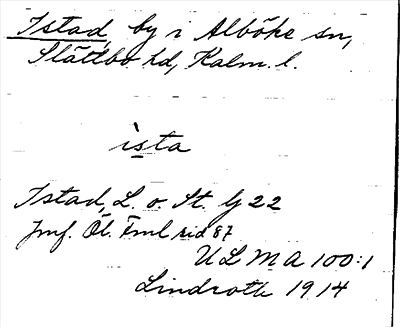 Istad, by i Alböke sn,
Slättbo hd, Kalm. l.
ìsta
Istad, L. o. St. G 22
Jmf. Öl. Fml sid 87
ULMA 100:1
Lindroth 1914